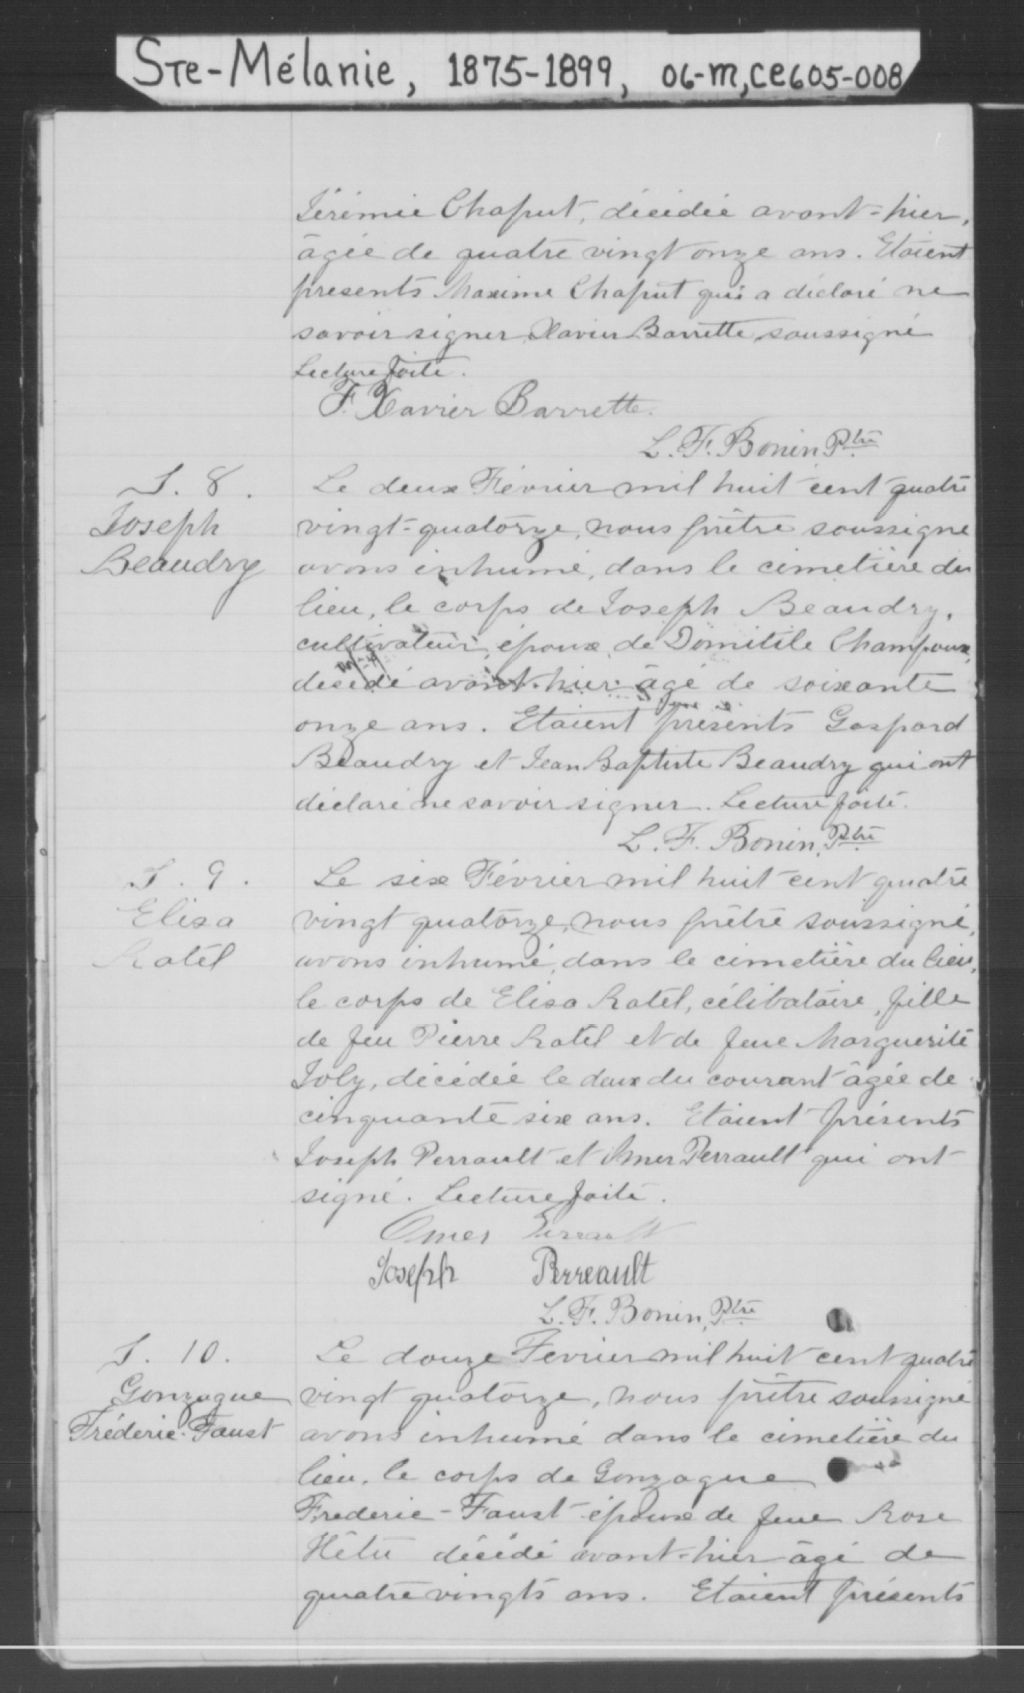 Ste-Mélanie, 1875-1899, 06-M,CE605-008
Jérémie Chaput, décédée avant-hier,
âgée de quatre vingt onze ans. Etaient
presents Maxime Chaput qui a déclaré ne
savoir signer Xavier Barrette soussigné
Lecture faite.
F. Xavier Barrette.
L. F. Bonin Ptre
S. 8.
Joseph
Beaudry
Le deux Février mil huit cent quatre
vingt-quatorze, nous prêtre soussigné
avons inhumé, dans le cimetière du
lieu, le corps de Joseph Beaudry,
cultivateur, époux de Domitile Champoux,
décédé avant-hier âgé de soixante
onze ans. Etaient présents Gaspard
Beaudry et Jean Baptiste Beaudry qui ont
déclaré ne savoir signer. Lecture faite.
L. F. Bonin, Ptre
S. 9.
Elisa
Ratel
Le six Février mil huit cent quatre
vingt quatorze, nous prêtre soussigné,
avons inhumé, dans le cimetière du lieu,
le corps de Elisa Ratel, célibataire, fille
de feu Pierre Ratel et de feue Marguerite
Joly, décédée le deux du courant âgée de
cinquante six ans. Etaient présents
Joseph Perrault et Omer Perrault qui ont
signé. Lecture faite.
Omer Perrault
Joseph Perreault
L. F. Bonin, Ptre
S. 10.
Gonzague
Fréderic-Faust
Le douze Fevrier mil huit cent quatre
vingt quatorze, nous prêtre soussigné
avons inhumé dans le cimetière du
lieu, le corps de Gonzague
Frederic-Faust époux de feue Rose
Hétu décédé avant-hier âgé de
quatre vingts ans. Etaient présents